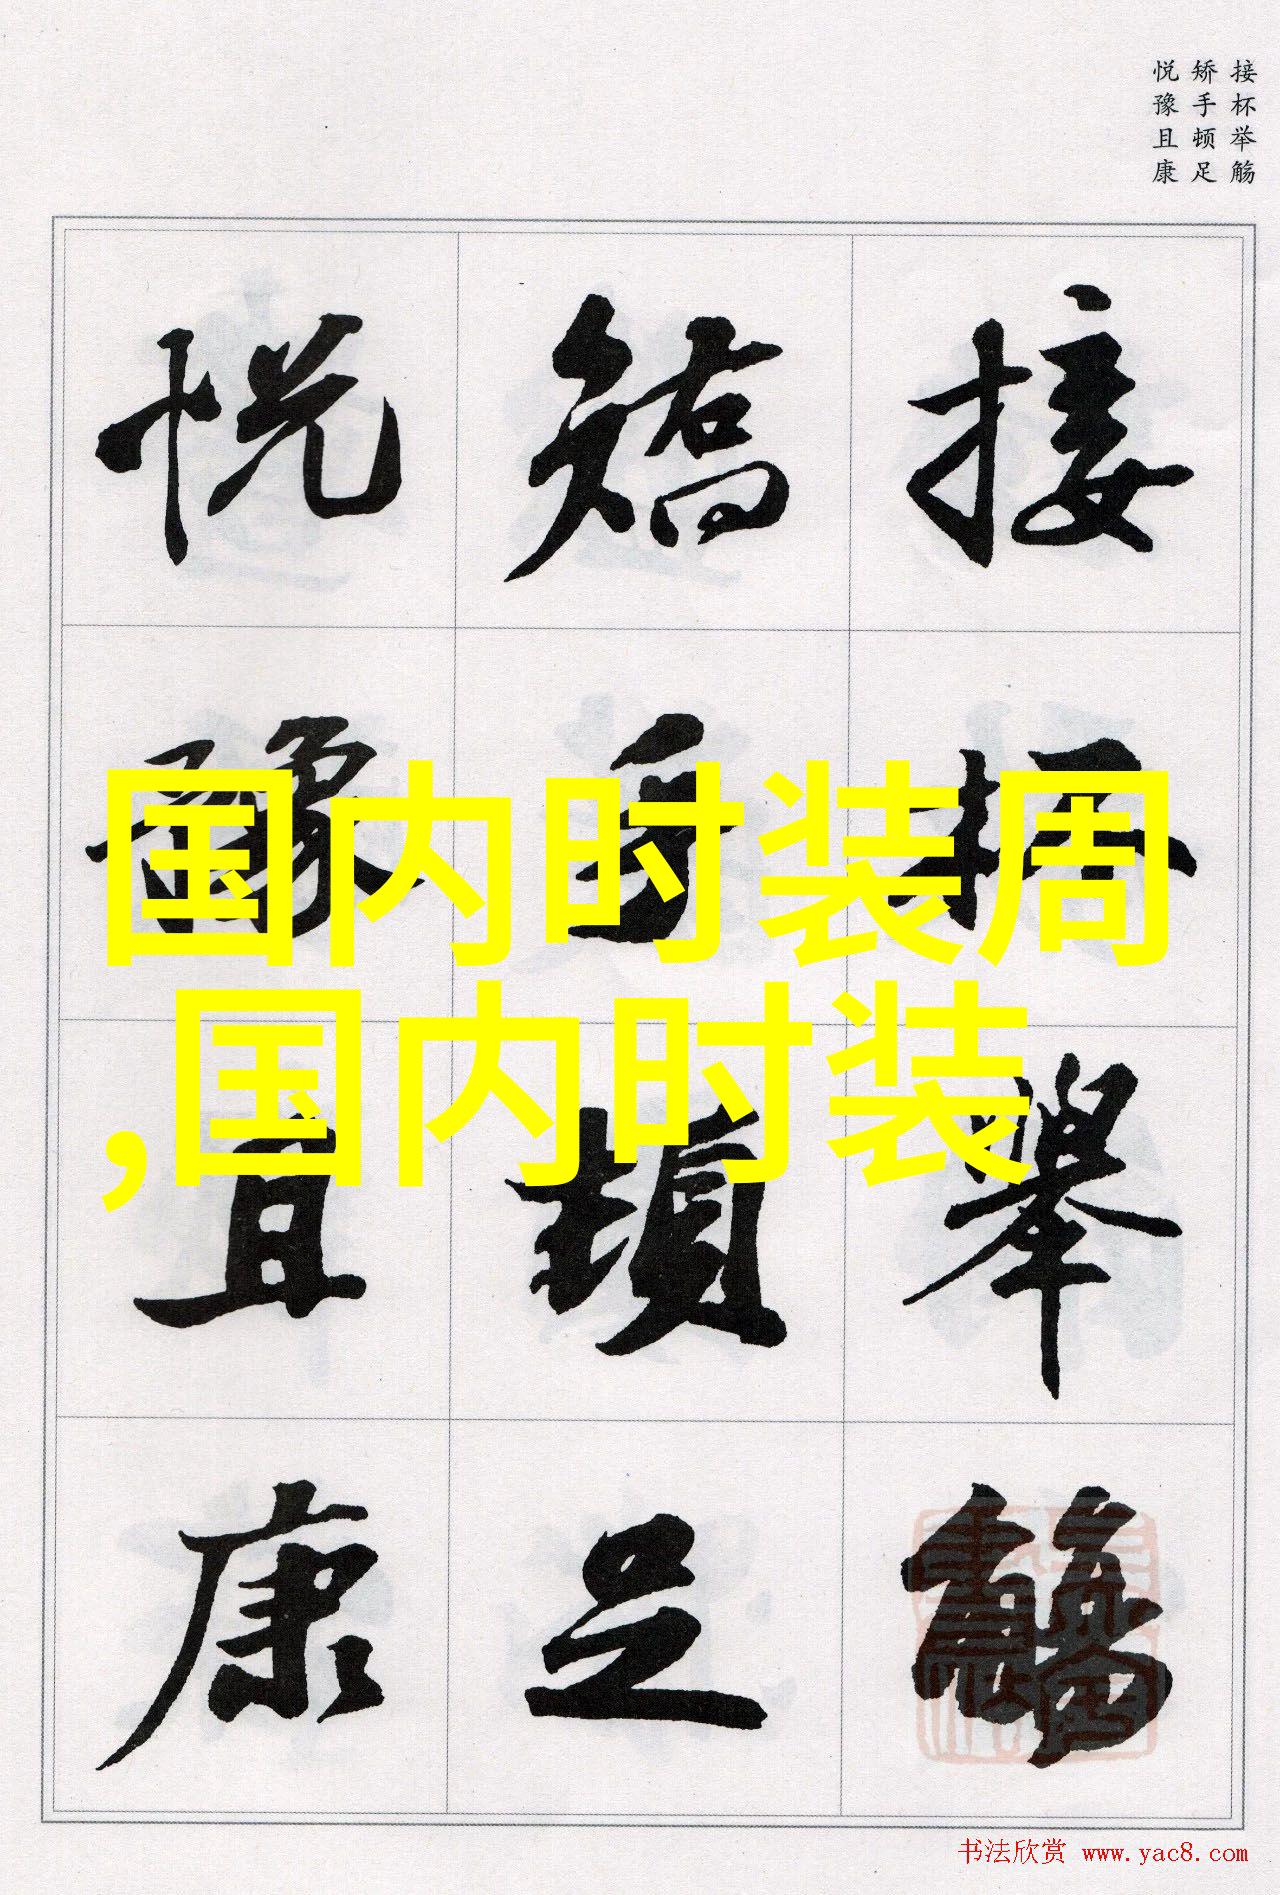 接杯举觞
矫手顿足
悦豫且康
接杯舉觴
矯手頓足
悦豫且康
国内时装周
,国内时装
书法欣赏 www.yac8.com